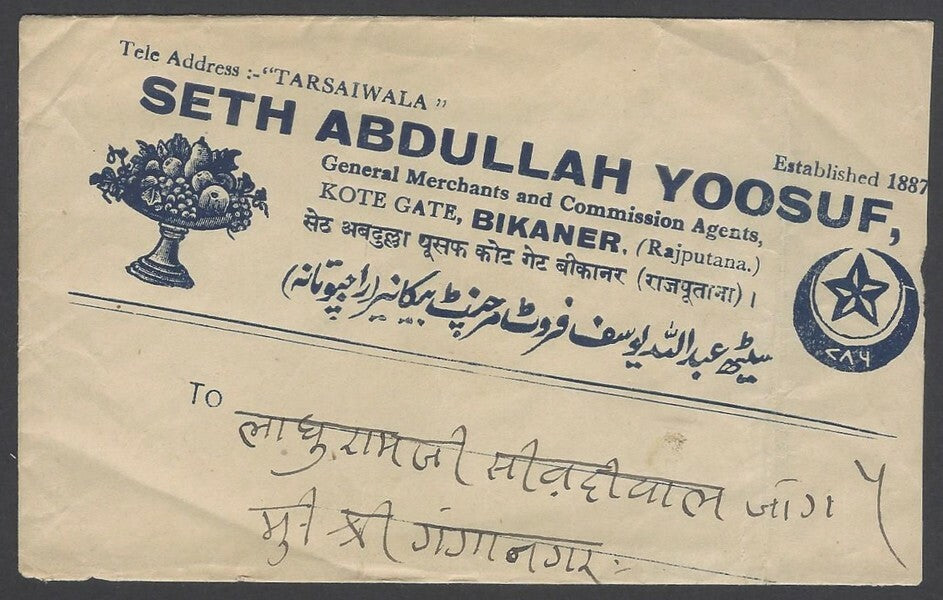 Tele Address :-"TARSAIWALA"
Established 1887
SETH ABDULLAH YOOSUF,
General Merchants and Commission Agents,
KOTE GATE, BIKANER. (Rajputana.)
सेठ अबदुल्ला यूसफ कोट गेट बीकानर (राजपूताना)।
سیٹھ عبداللہ یوسف فروٹ مرچنٹ بیکانیر (راجپوتانہ)
۷۸۶
To
लाधुरामजी
श्री गंगानगर